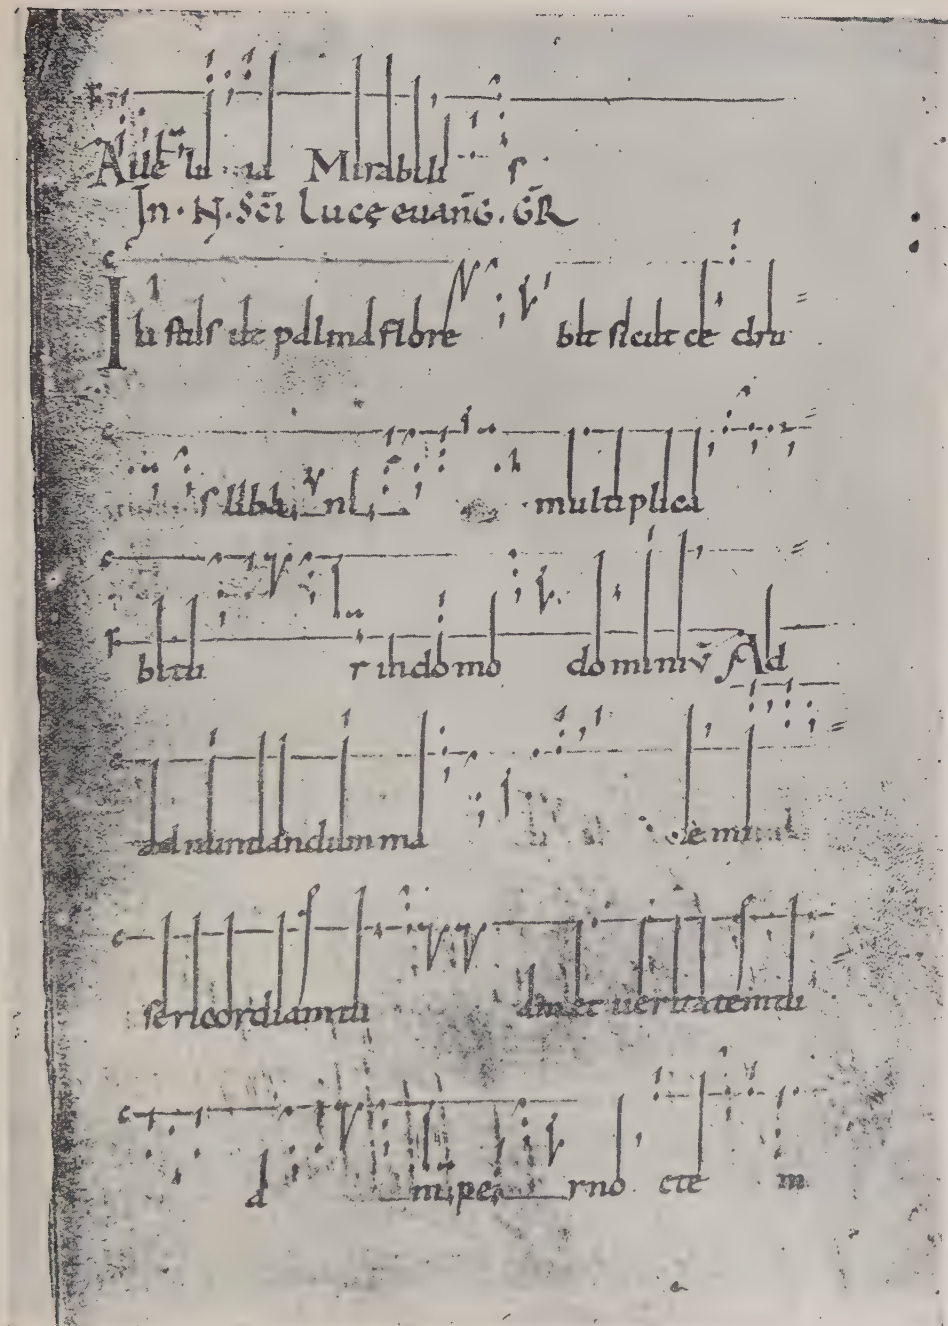 Alle lu ia Mirabili s
In · N · Sc̄i Lucę evan̄G. GR̄
Iu stus ut palma flore bit sicut ce dru
s liba ni multi plica
bitu r indo mo do mini v̄ Ad
ad nuntiandum ma ne mi
sericordiam tu am et veritatem tu
a m per no cte m